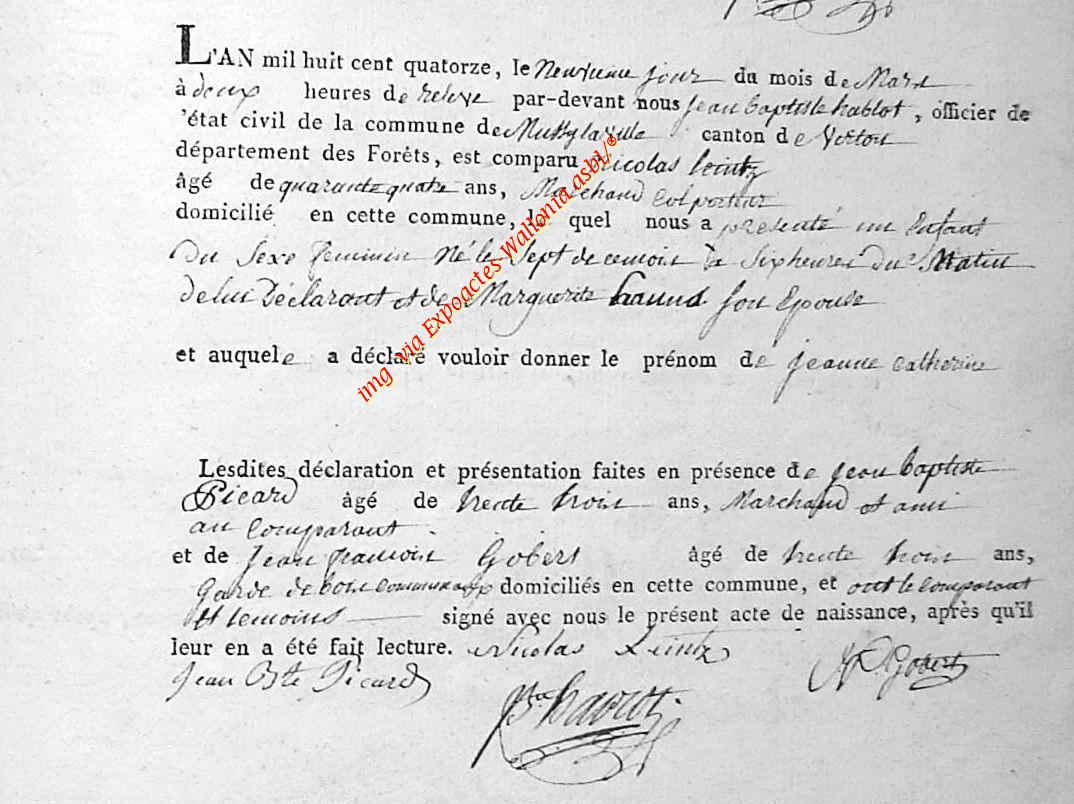 L'AN mil huit cent quatorze, le Neuvieme jour du mois de Mars
à deux heures de relevé par-devant nous jean baptiste hablot, officier de
'état civil de la commune de Mussy la ville canton de Virton
département des Forêts, est comparu Nicolas Leintz
âgé de quarante quatre ans, Marchand colporteur
domicilié en cette commune, le quel nous a présenté un Enfant
Du Sexe feminin Né le Sept de ce mois à Six heures du Matin
de lui Déclarant et de Marguerite son Epouse
et auquel e a déclaré vouloir donner le prénom de jeanne catherine
Lesdites déclaration et présentation faites en présence de jean baptiste
Picard âgé de trente trois ans, Marchand et ami
au comparant
et de jean francois Gobert âgé de trente trois ans,
Garde de bois communaux domiciliés en cette commune, et ont le comparant
et temoins signé avec nous le présent acte de naissance, après qu'il
leur en a été fait lecture. Nicolas Leintz
Jean Bste Picard
Gobert
img via Expoactes-Wallonia asbl/®